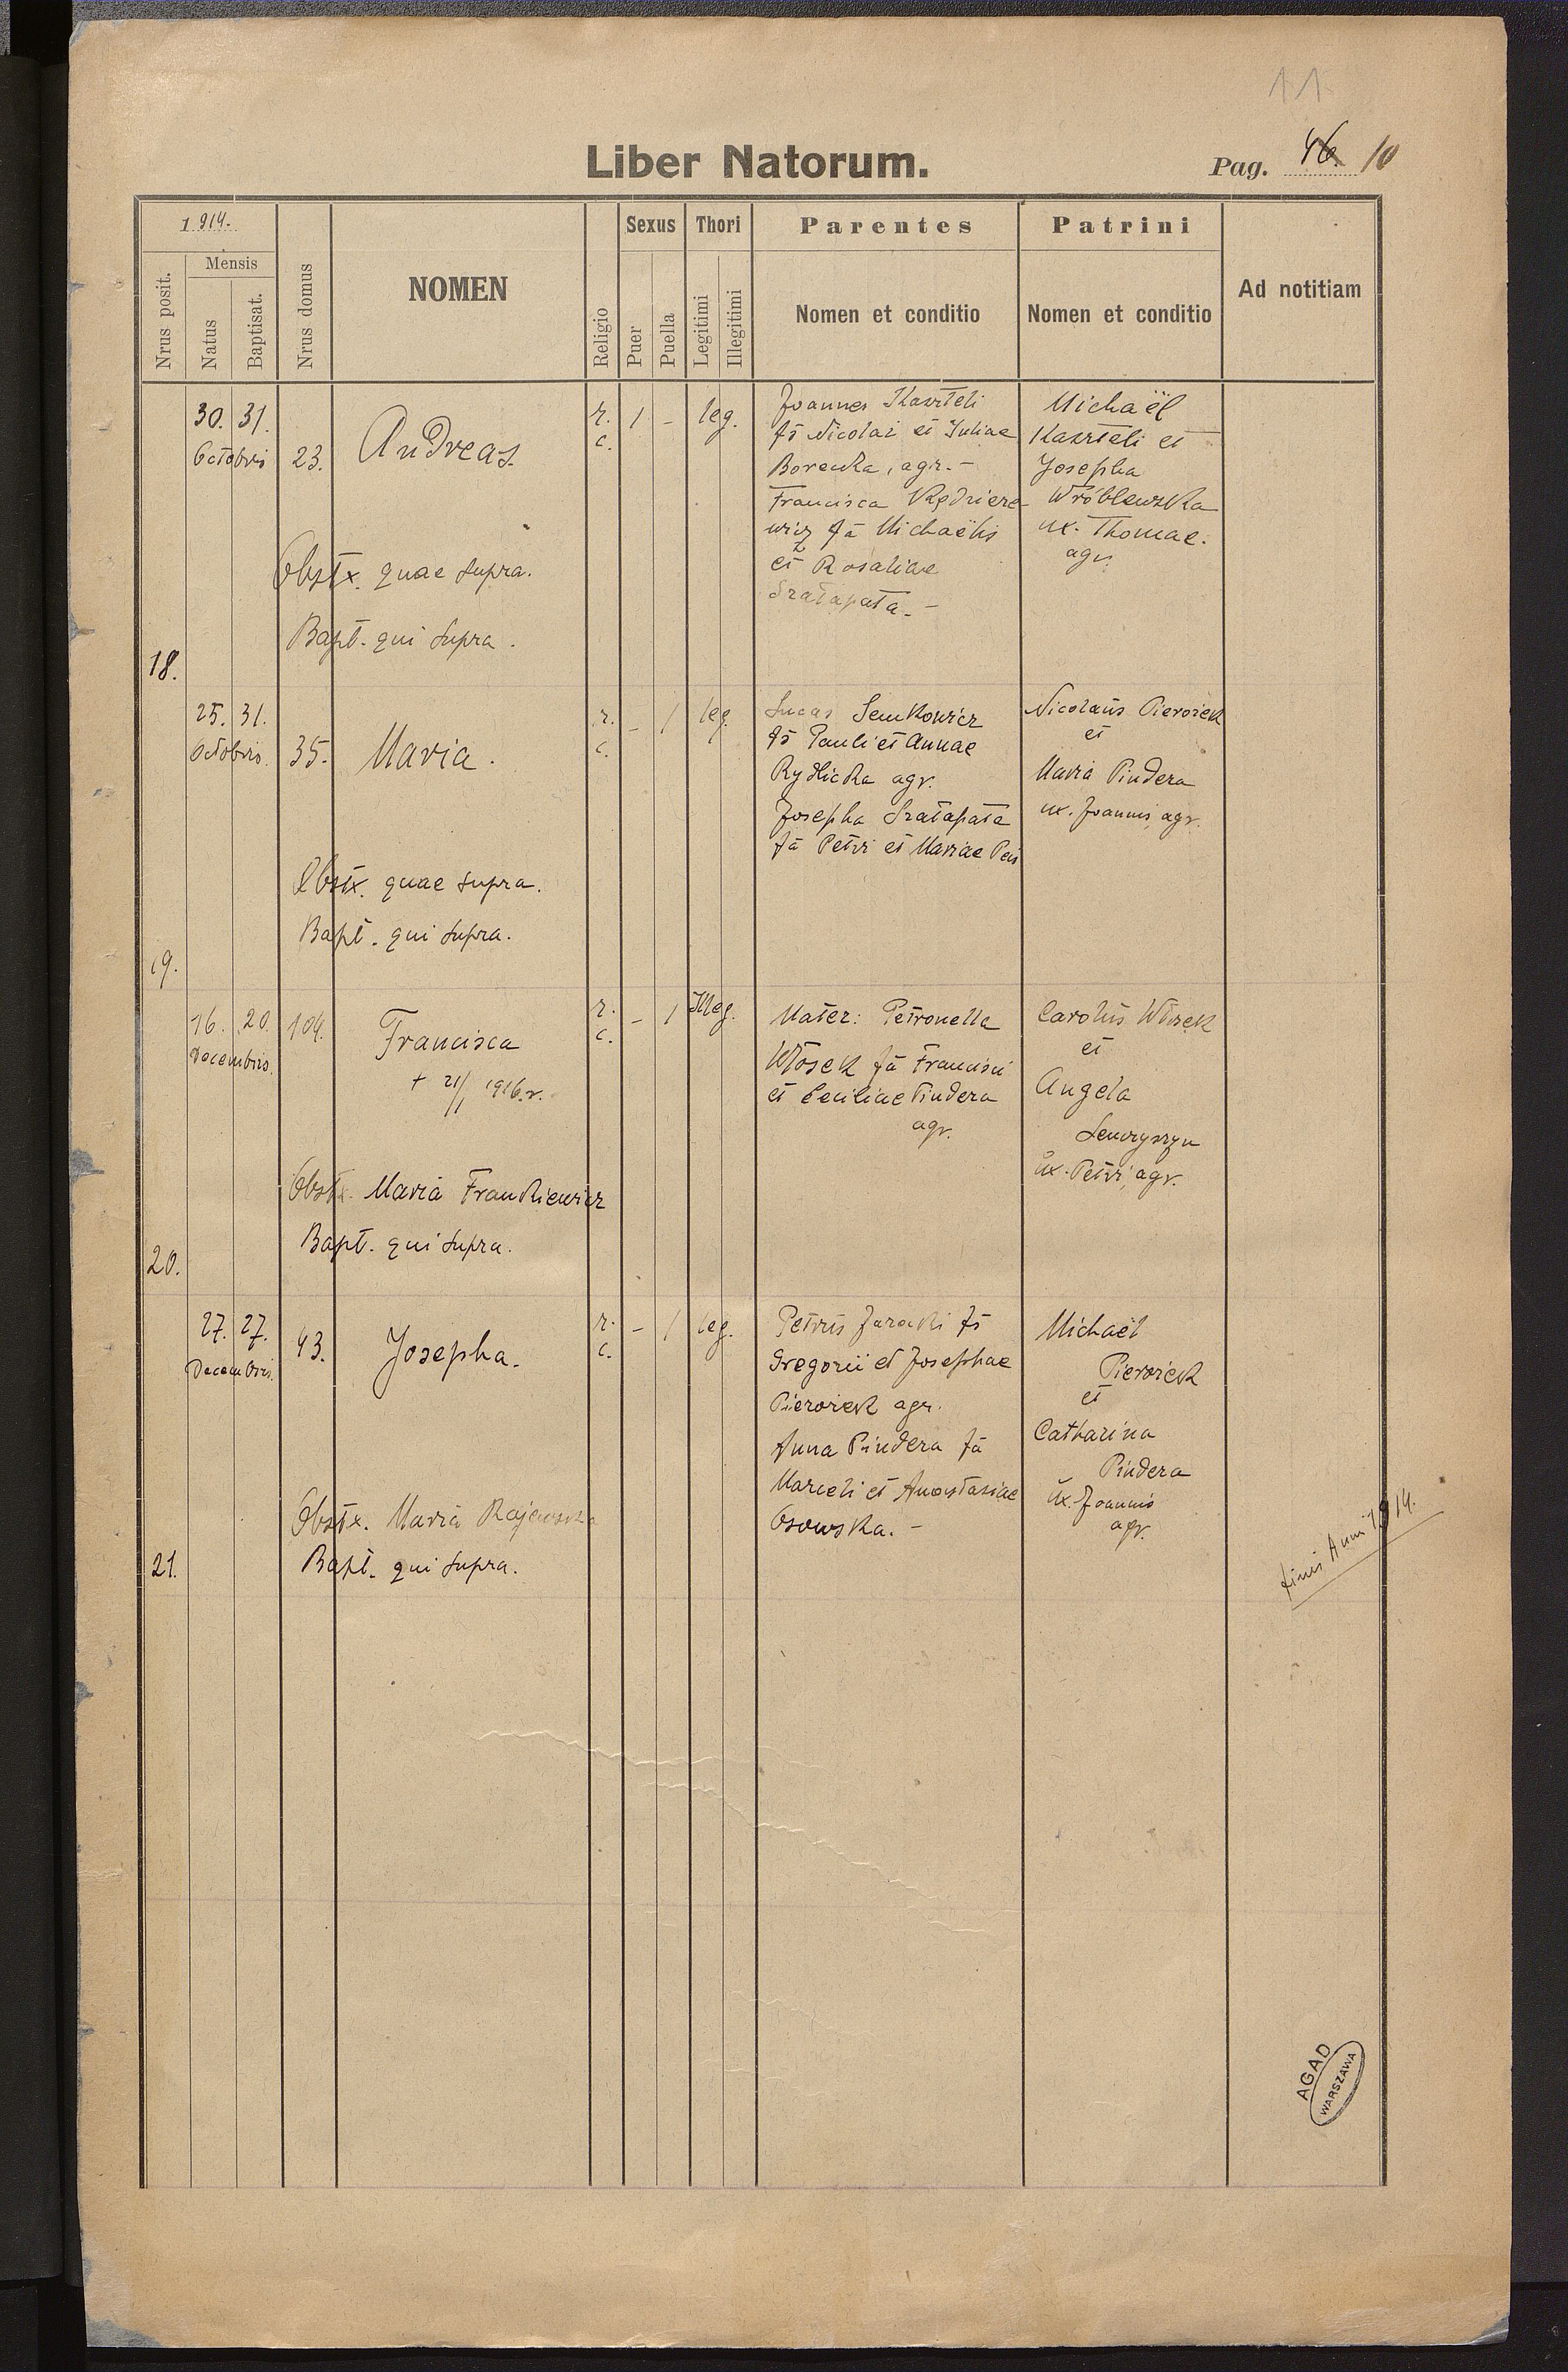 11
Liber Natorum.
Pag. 46. 10
1914.
Nrus posit.
Mensis
Natus
Baptisat.
Nrus domus
NOMEN
Religio
Sexus
Puer
Puella
Thori
Legitimi
Illegitimi
Parentes
Nomen et conditio
Patrini
Nomen et conditio
Ad notitiam
18.
30. 31.
Octobris
23.
Andreas
Obstx. quae supra.
Bapt. qui supra.
r.
c.
1 -
leg.
Joannes Kaszteli
fs Nicolai et Juliae
Borecka, agr. -
Francisca Kędziere-
wicz fa Michaëlis
et Rosaliae
Szałapata. -
Michaël
Kasrteli et
Josepha
Wróblewska
ux. Thomae.
agr.
19.
25. 31.
Octobris.
35.
Maria.
Obstx. quae supra.
Bapt. qui supra.
r.
c.
- 1
leg.
Lucas Semkowicz
fs Pauli et Annae
Rydlicka agr.
Josepha Szałapata
fa Petri et Mariae
Nicolaus Pierożek
et
Maria Pindera
ux. Joannis, agr.
20.
16. 20.
Decembris.
104.
Francisca
+ 21/1 1916.r.
Obstx. Maria Frankiewicz
Bapt. qui supra.
r.
c.
- 1
Illeg.
Mater: Petronella
Włosek fa Francisci
et Ceciliae Pindera
agr.
Carolus Włosek
et
Angela
ux. Petri, agr.
21.
27. 27.
Decembris.
43.
Josepha.
Obstx. Maria Rajewska
Bapt. qui supra.
r.
c.
- 1
leg.
Petrus Żaracki fs
Gregorii et Josephae
Pierożek agr.
Anna Pindera fa
Marceli et Anastasiae
Osowska. -
Michaël
Pierożek
et
Catharina
Pindera
ux. Joannis
agr.
finis Anni 1914.
AGAD
WARSZAWA